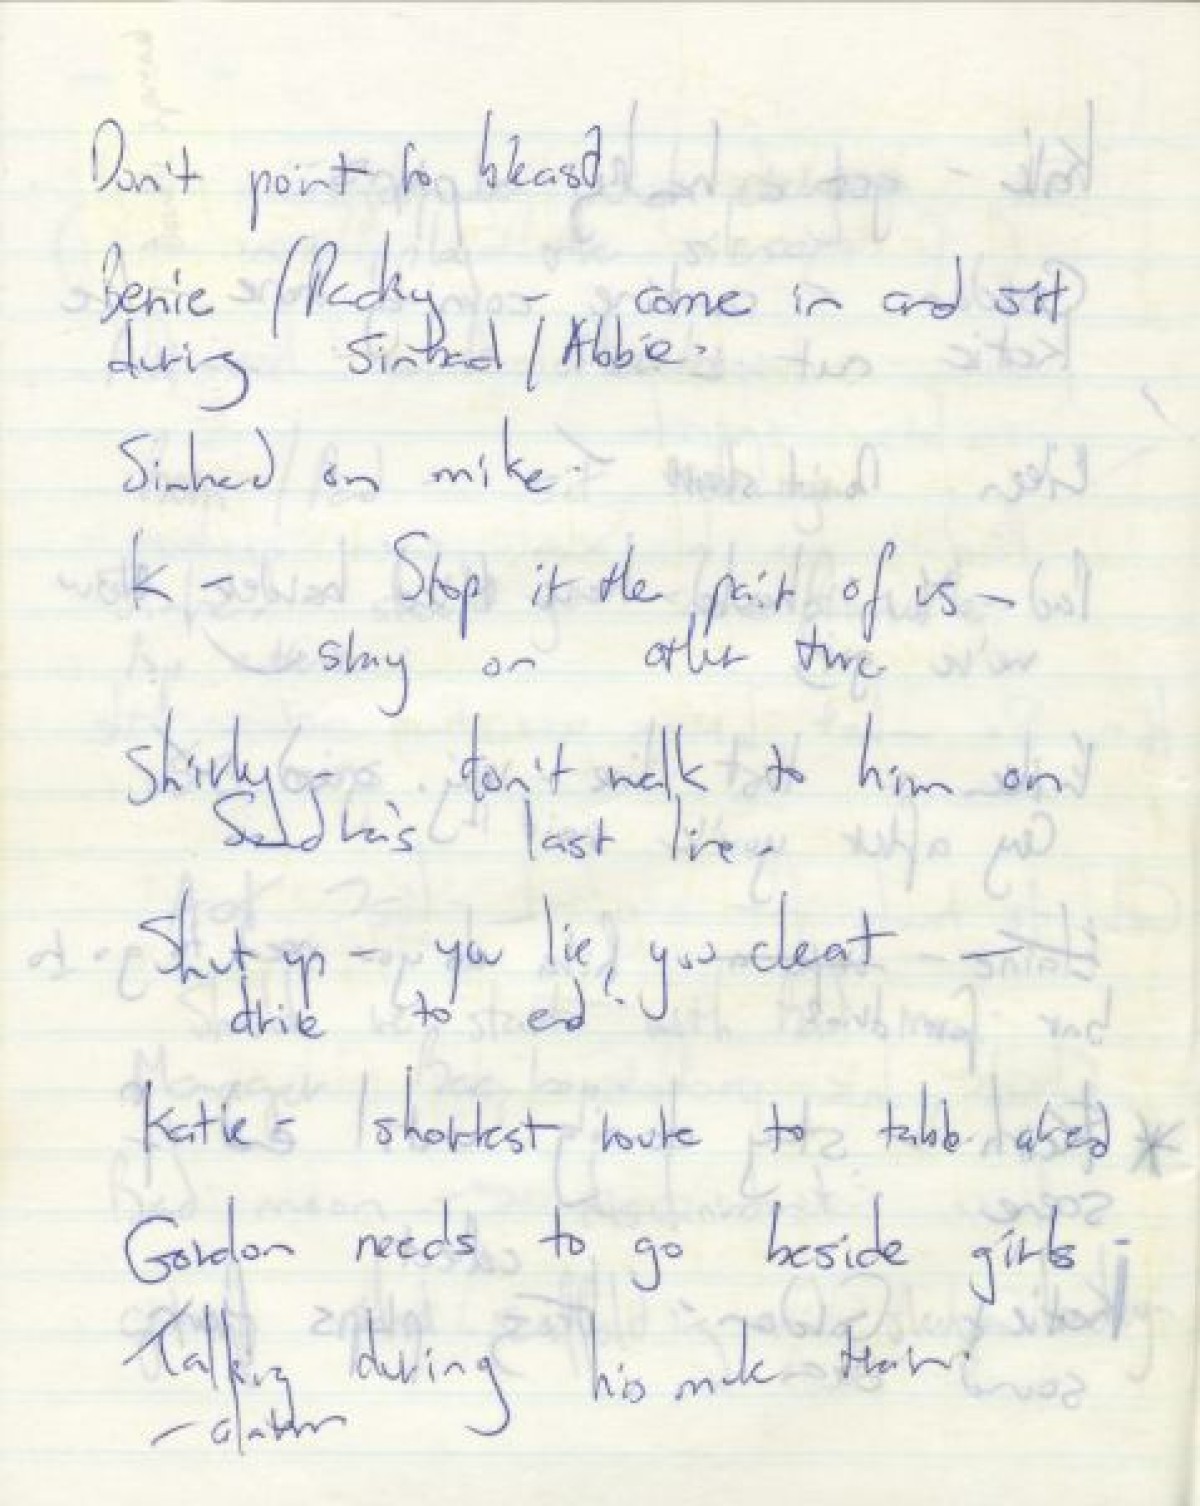 Don't point to breast
Benie / Packy - come in and sit
during Sinead / Abbie.
Sinead on mike.
K - Stop it the pair of us -
stay on other two
Shirley - don't walk to him on
last line.
Shut up - you lie, you cheat -
drive to end
Katie - shortest route to table ahead
Gordon needs to go beside girls -
Talking during his mek
- alarm